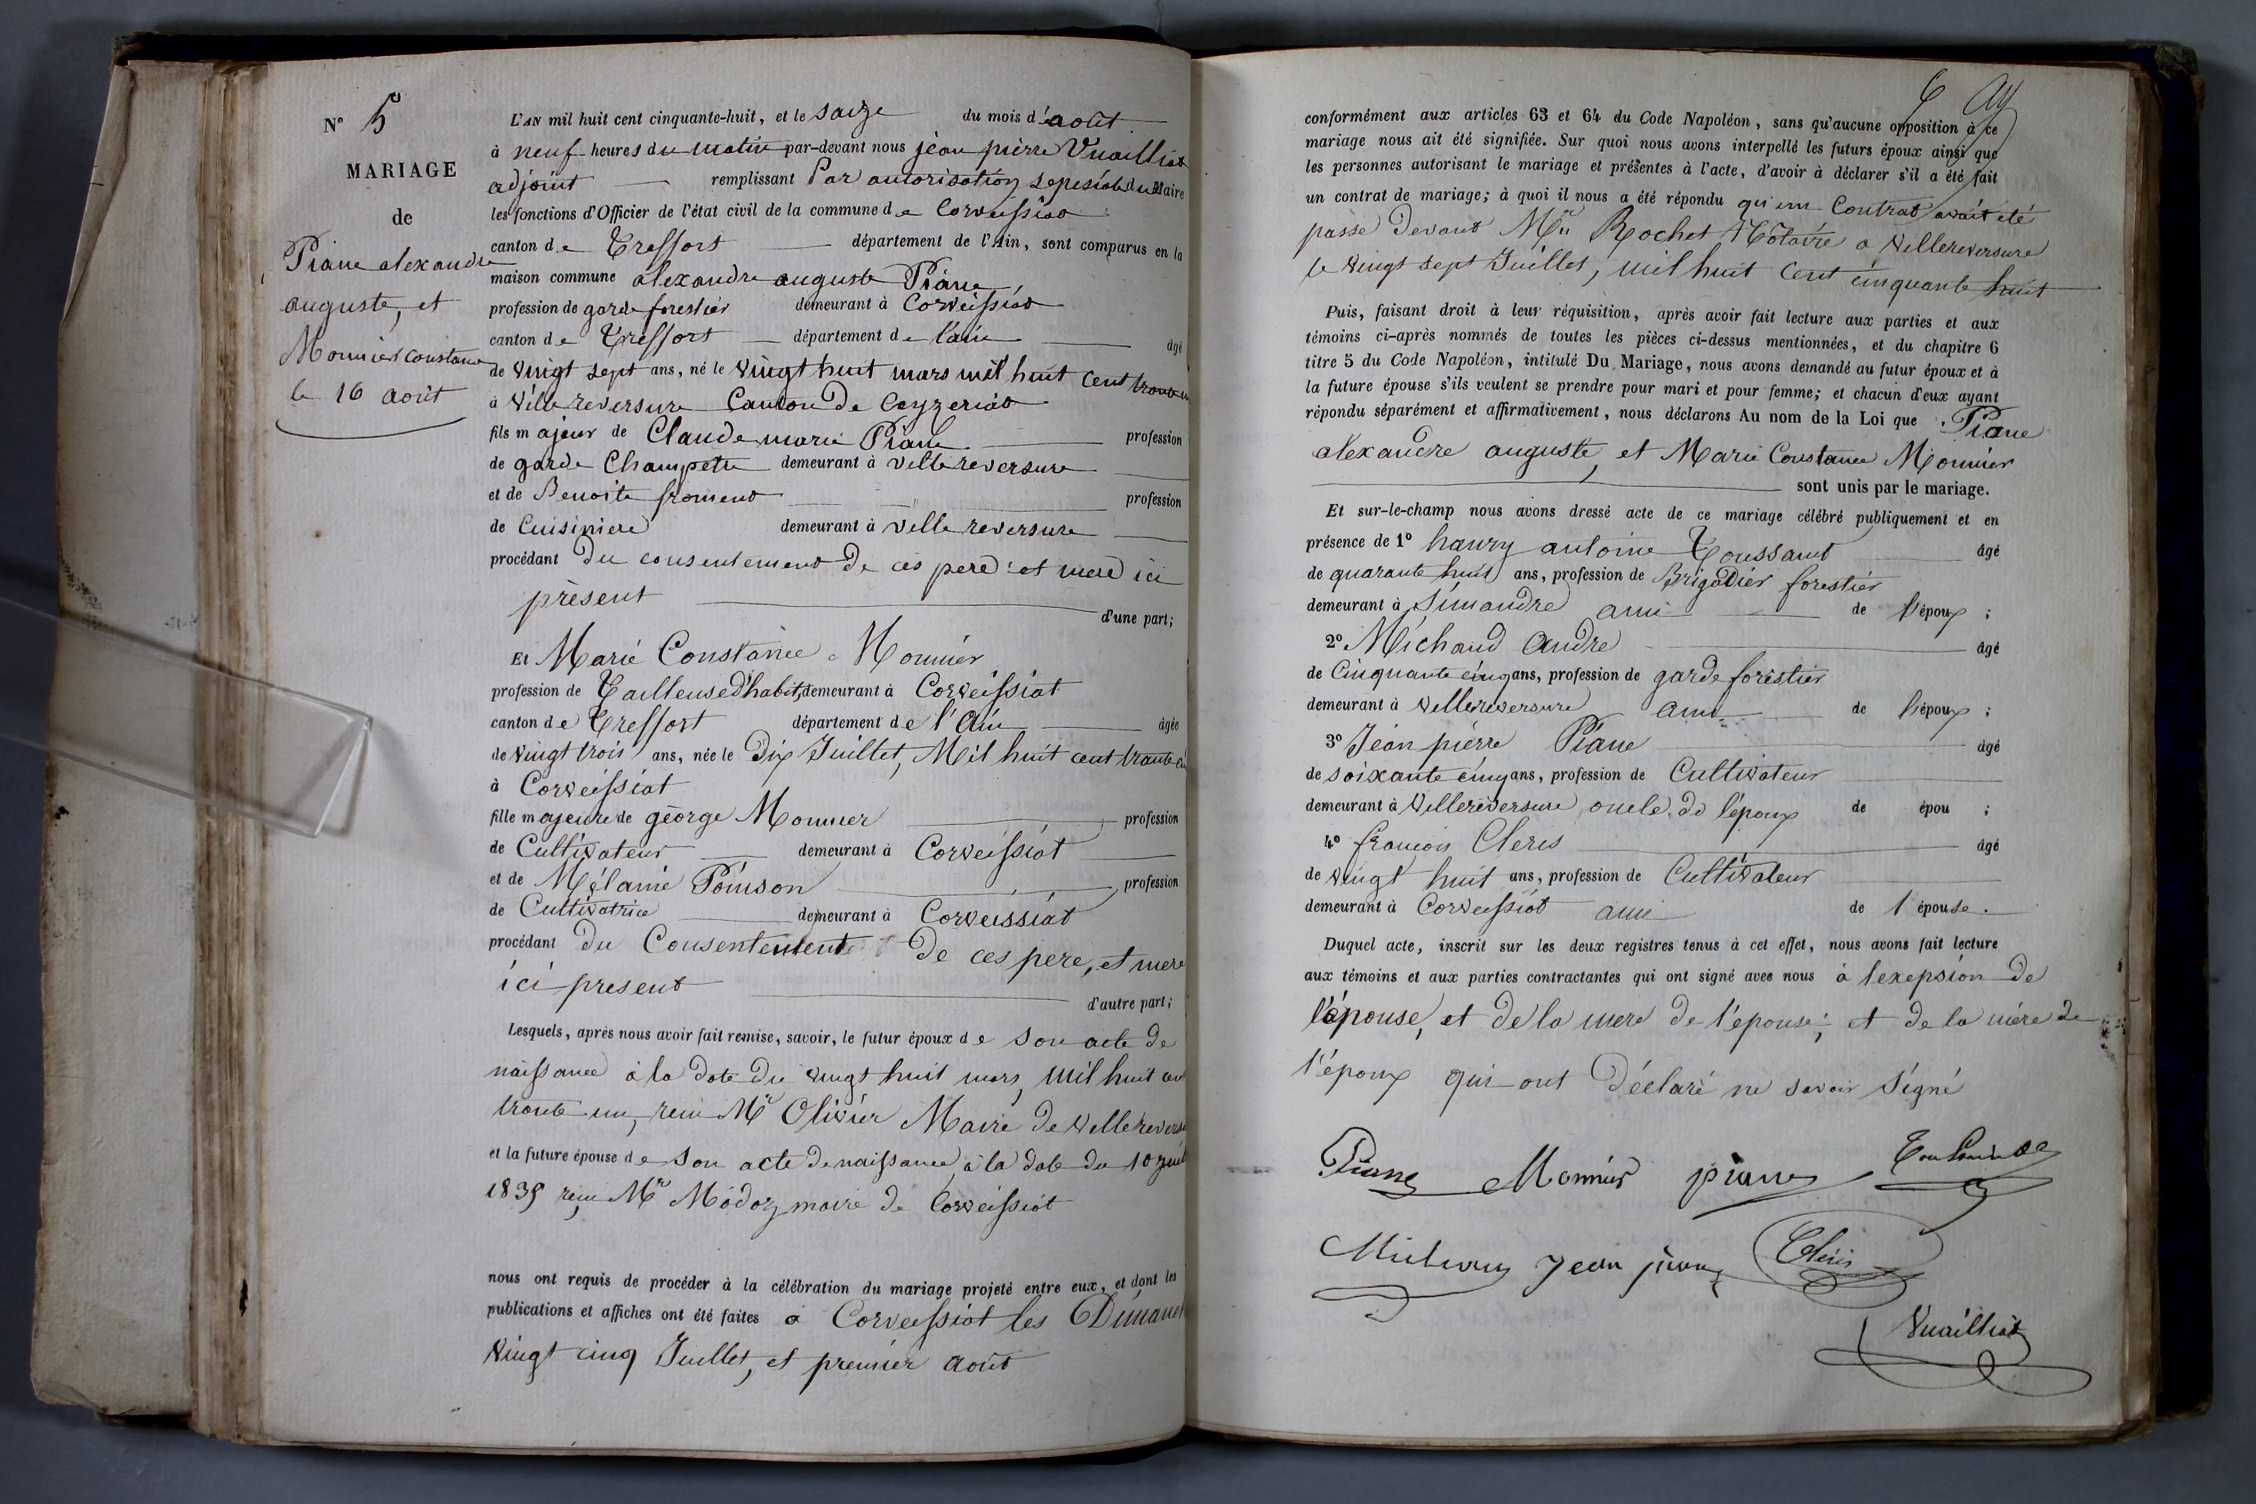 N° 5
MARIAGE
de
Piane alexandre
auguste, et
Monnier Constance
le 16 août
L'AN mil huit cent cinquante-huit, et le saize du mois d'août
à neuf heures du matin par-devant nous jèan pièrre Vuailliat
adjoint remplissant Par autorisation du Maire
les fonctions d'Officier de l'état civil de la commune de Corveissiat
canton de Treffort département de l'Ain, sont comparus en la
maison commune alexandre auguste Piane
profession de garde forestier demeurant à Corveissiat
canton de Treffort département de l'ain âgé
de Vingt sept ans, né le Vingt huit mars mil huit cent trente un
à Villereversure Canton de Ceyzeriat
fils majeur de Claude marie Piane profession
de garde Champetre demeurant à Villereversure
et de Benoite froment profession
de Cuisiniere demeurant à Villereversure
procédant du consentement de ces pere et mere ici
présent d'une part;
Et Marie Constance Monnier
profession de Tailleuse d'habit, demeurant à Corveissiat
canton de Treffort département de l'Ain âgée
de Vingt trois ans, née le Dix Juillet, Mil huit cent trante
à Corveissiat
fille majeure de géorge Monnier profession
de Cultivateur demeurant à Corveissiat
et de Mélanie Poinson profession
de Cultivatrice demeurant à Corveissiat
procédant du Consentement De ces pere, et mere
ici present d'autre part;
Lesquels, après nous avoir fait remise, savoir, le futur époux de son acte de
naissance à la date du Vingt huit mars, Mil huit cent
trante un, Mr Olivier Maire de Villereversure
et la future épouse de son acte de naissance, à la date du 10
1835 Mr maire de Corveissiat
nous ont requis de procéder à la célébration du mariage projeté entre eux, et dont les
publications et affiches ont été faites à Corveissiat les Dimanch
Vingt cinq Juillet, et premier août
conformément aux articles 63 et 64 du Code Napoléon, sans qu'aucune opposition à ce
mariage nous ait été signifiée. Sur quoi nous avons interpellé les futurs époux ainsi que
les personnes autorisant le mariage et présentes à l'acte, d'avoir à déclarer s'il a été fait
un contrat de mariage; à quoi il nous a été répondu qu'un Contrat avait été
passé devant Rochet Notaire a Villereversure
le Vingt sept Juillet, mil huit Cent cinquante huit
Puis, faisant droit à leur réquisition, après avoir fait lecture aux parties et aux
témoins ci-après nommés de toutes les pièces ci-dessus mentionnées, et du chapitre 6
titre 5 du Code Napoléon, intitulé Du Mariage, nous avons demandé au futur époux et à
la future épouse s'ils veulent se prendre pour mari et pour femme; et chacun d'eux ayant
répondu séparément et affirmativement, nous déclarons Au nom de la Loi que Piane
alexandre auguste, et Marie Constance Monnier
sont unis par le mariage.
Et sur-le-champ nous avons dressé acte de ce mariage célébré publiquement et en
présence de 1° antoine Toussaint âgé
de quarante huit ans, profession de Brigadier forestier
demeurant à Simandre ami de l'époux;
2° Michaud Andre âgé
de Cinquante cinq ans, profession de garde forestier
demeurant à Villereversure ami de l'époux;
3° Jéan pièrre Piane âgé
de soixante cinq ans, profession de Cultivateur
demeurant à Villereversure oncle de l'époux de épou;
4° françois Cleris âgé
de Vingt huit ans, profession de Cultivateur
demeurant à Corveissiat ami de l'épouse.
Duquel acte, inscrit sur les deux registres tenus à cet effet, nous avons fait lecture
aux témoins et aux parties contractantes qui ont signé avec nous à l'exepsion de
l'épouse, et de la mere de l'épouse; et de la mére de
l'époux qui ont Déclaré ne savoir signé
Piane Monnier piane
Jean piane Cleris
Vuailliat